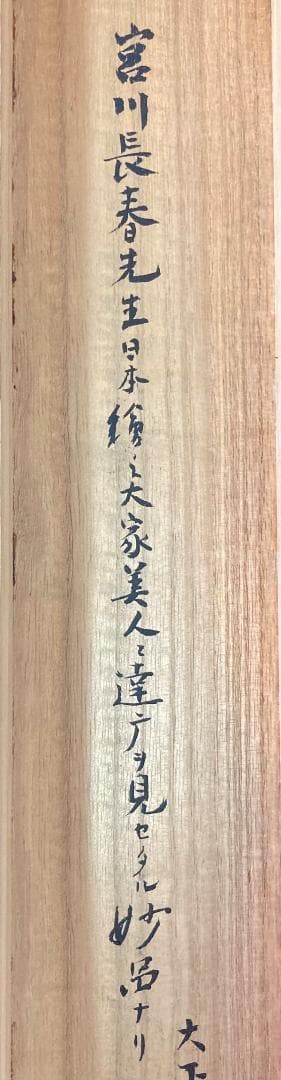 宮川長春先生日本繪之大家美人ニ達广ヲ見セタル妙品ナリ
大